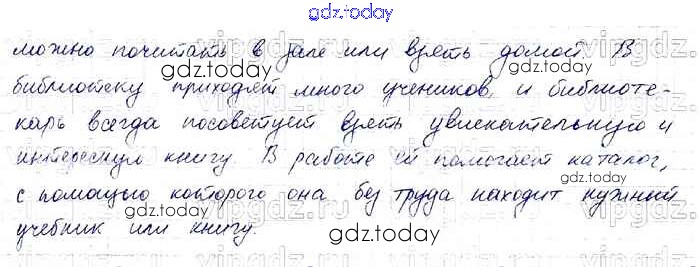 gdz.today
можно почитать в зале или взять домой. В
gdz.today
библиотеку приходят много учеников, и библиоте-
карь всегда посоветует взять увлекательную и
gdz.today
интересную книгу. В работе ей помогает каталог,
gdz.today
с помощью которого она без труда находит нужный
gdz.today
учебник или книгу.
gdz.today